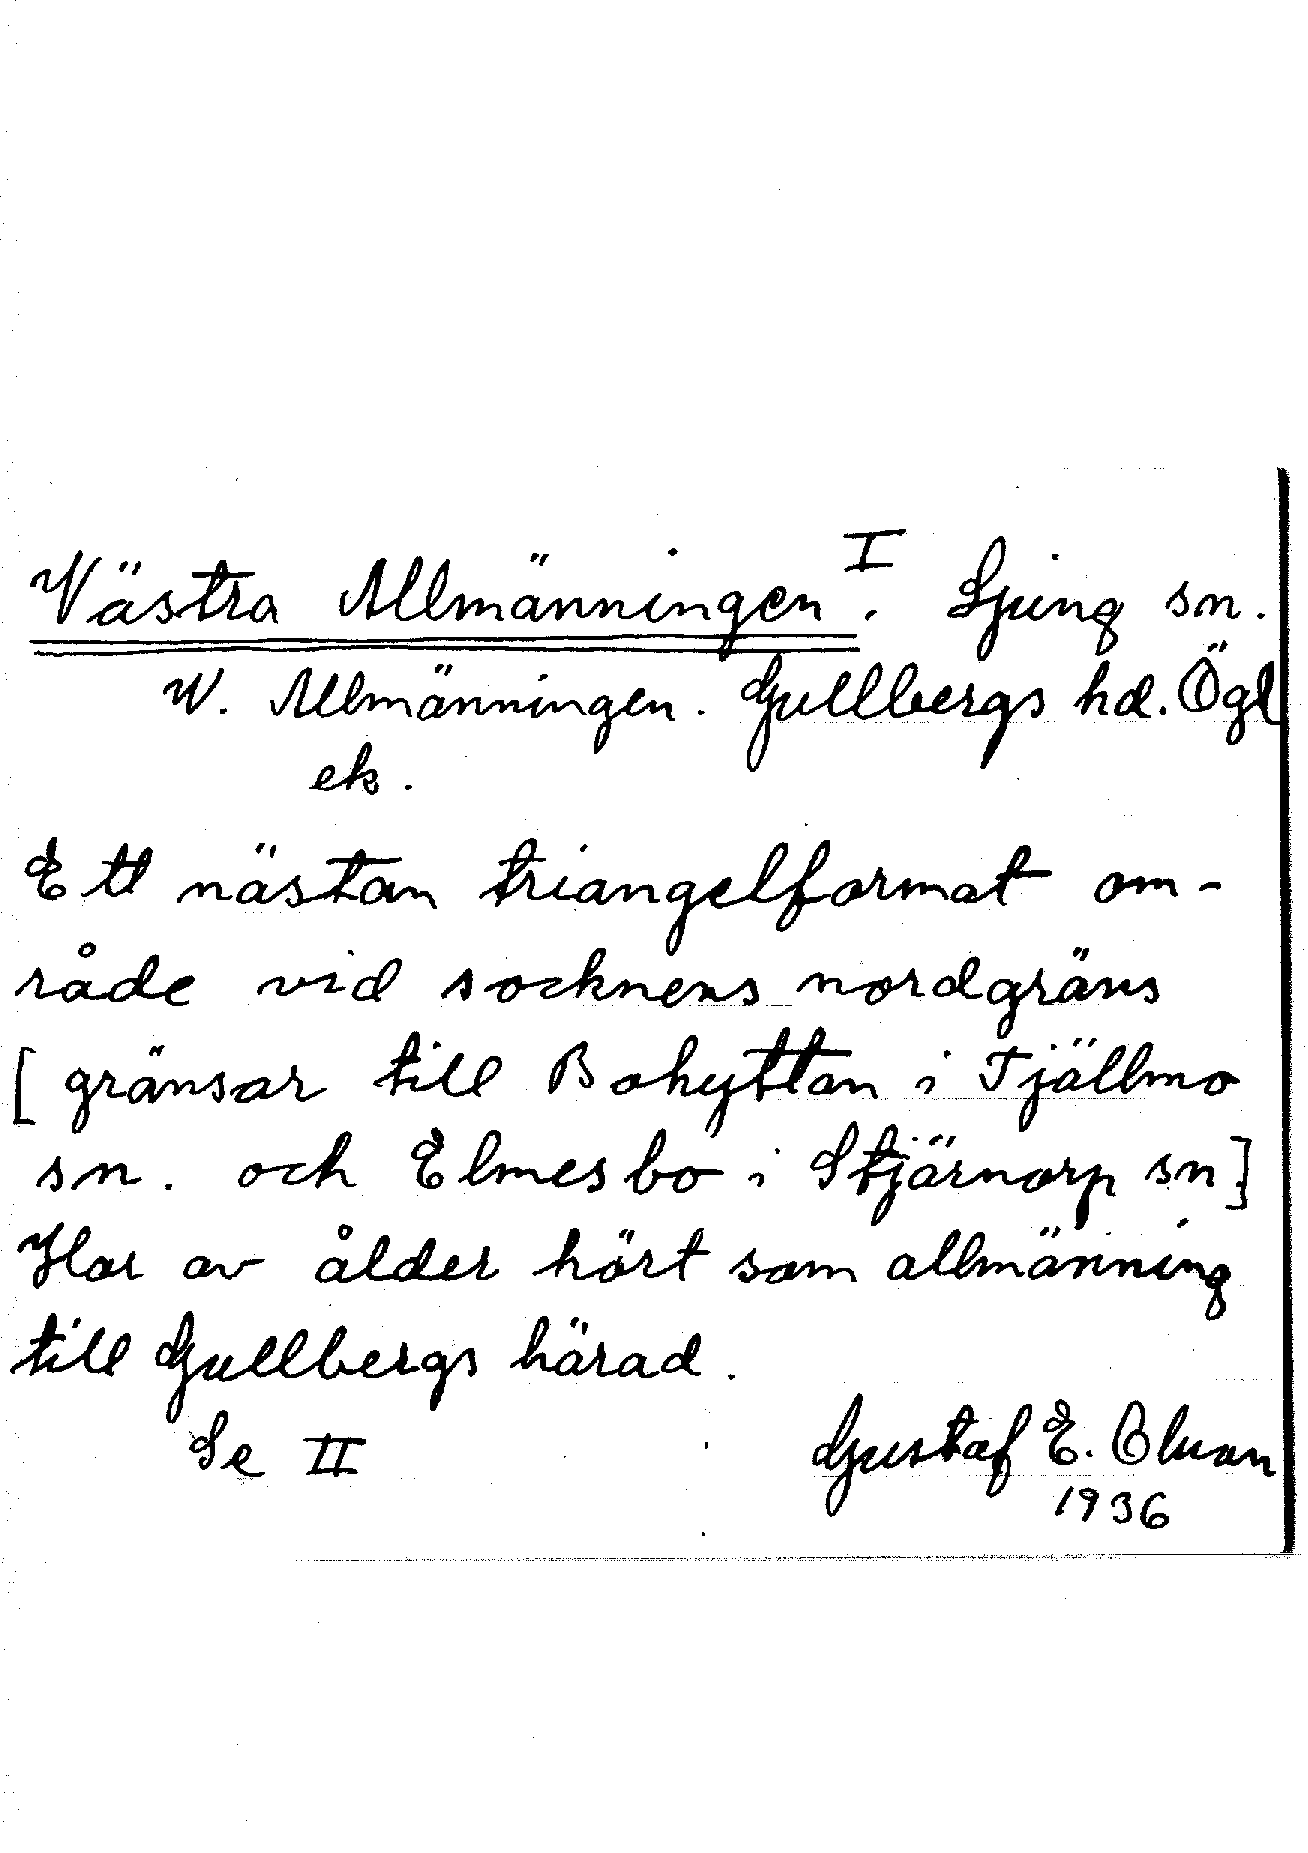 Västra Allmänningen I. Ljung sn.
W. Allmänningen. Gullbergs hd. Ögl
ek.
Ett nästan triangelformat om-
råde vid socknens nordgräns
[gränsar till Bohyttan i Tjällmo
sn. och Elmesbo i Stjärnorp sn.]
Har av ålder hört som allmänning
till Gullbergs härad.
Se II
Gustaf E. Olsson
1936